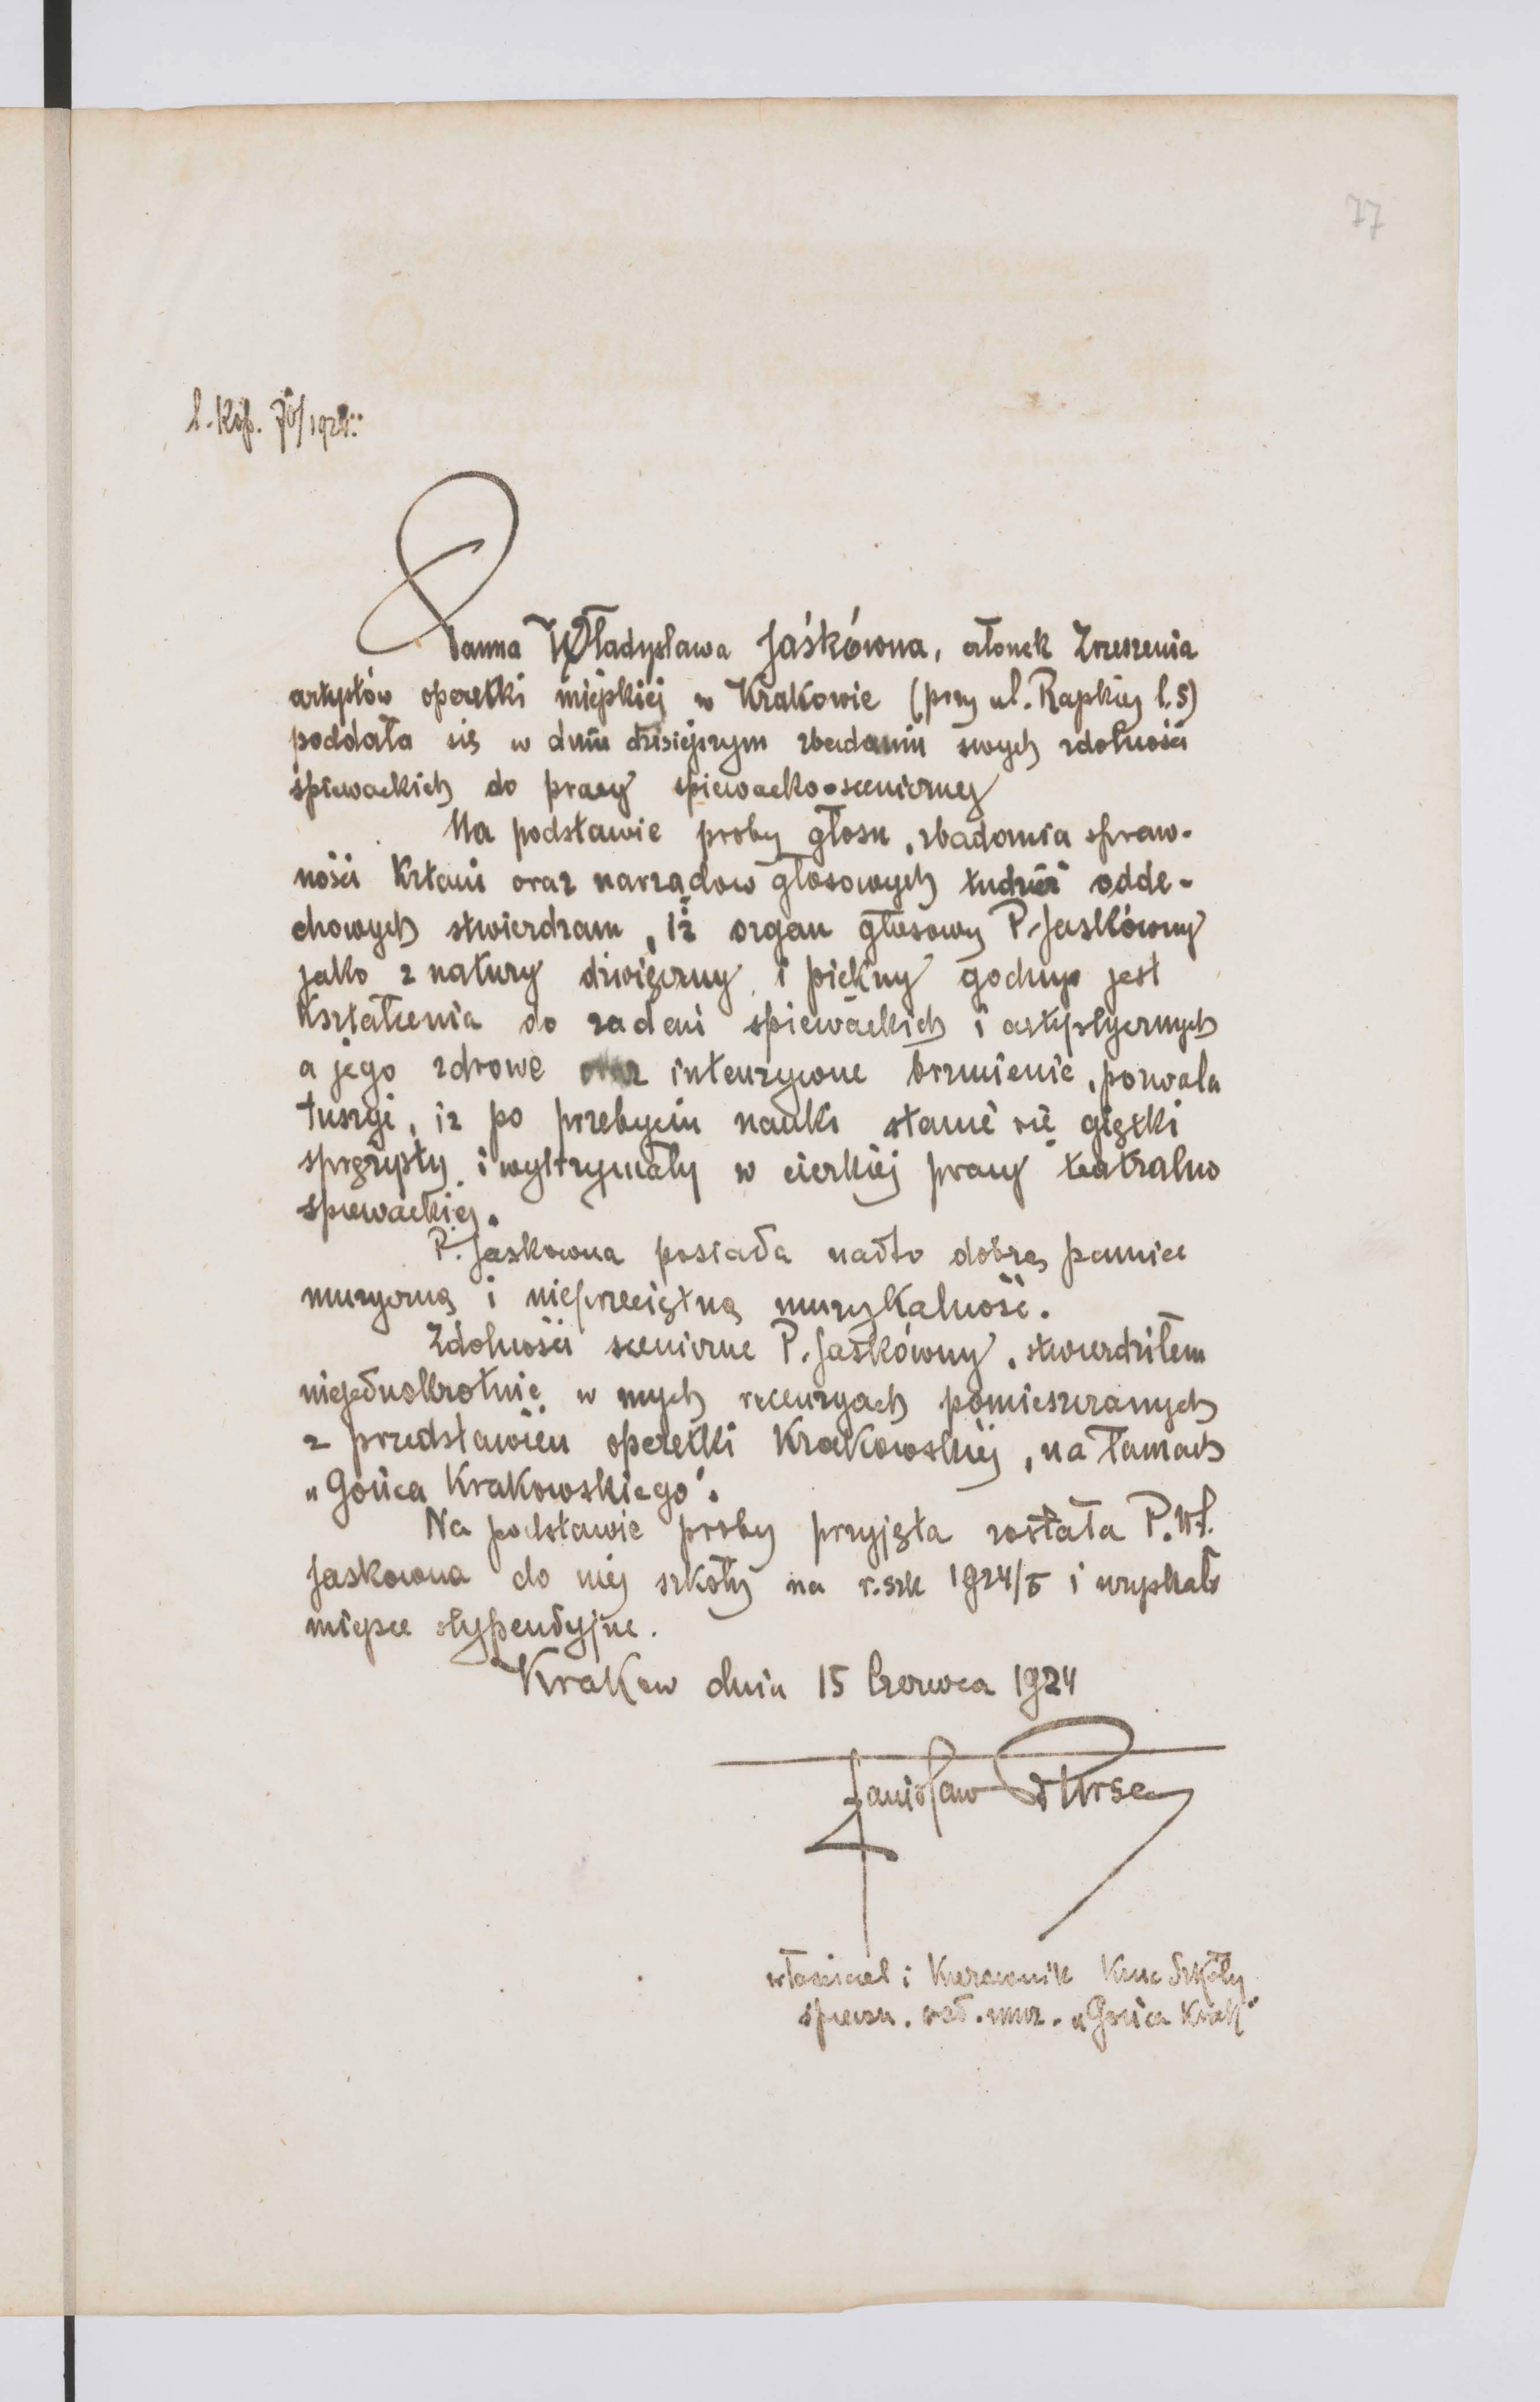 77
l. Kop. 70/1924:
Panna Władysława Jaśkówna, członek Zrzeszenia
artystów operetki miejskiej w Krakowie (przy ul. Rajskiej l. 5)
poddała się w dniu dzisiejszym zbadaniu swych zdolności
śpiewackich do pracy spiewacko-scenicznej
Na podstawie proby głosu, zbadania spraw-
ności Krtani oraz narządow głosowych tudzież odde-
chowych stwierdzam, iż organ głosowy P. Jaskówny
jako z natury dźwięczny i piekny godnyo jest
Kształcenia do zadań spiewackich i artystycznych
a jego zdrowe oraz intenzywne brzmienie, pozwala
tuszyć, iz po przebyciu nauki stanie się giętki
sprężysty i wytrzymały w cieżkiej pracy teatralno
spiewackiej.
P. Jaskowna posiada nadto dobrą pamiec
muzyczną i nieprzeciętną muzykalność.
Zdolności sceniczne P. Jaskówny, stwierdziłem
niejednokrotnie w mych recenzyach pomieszczanych
z przedstawień operetki Krakowskiej, na łamach
„Gońca Krakowskiego".
Na podstawie proby przyjęta została P. Wł.
Jaskowna do mej szkoły na r. szk 1924/5 i uzyskała
miejsce stypendyjne.
Krakow dnia 15 Czerwca 1924
Stanisław Bursa
własciciel i Kierownik Konc Szkoły
spiewu. red. muz. „Gońca Krak"